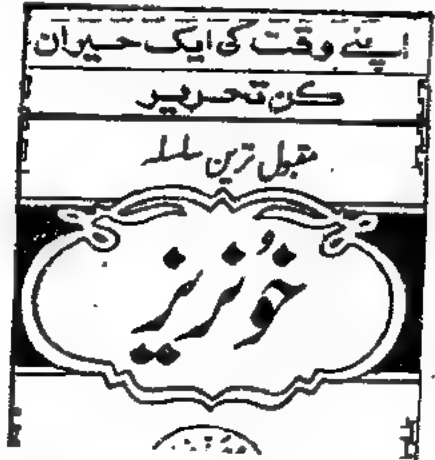 اپنے وقت کی ایک حیران
کن تحریر
مقبول ترین سلسلہ
خونریز